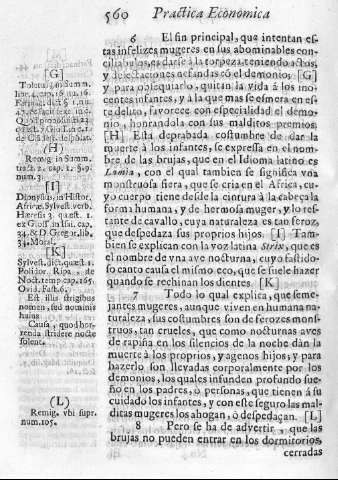 560 Practica Economica
6 El fin principal, que intentan es-
tas infelizes mugeres en sus abominables con-
ciliabulos, es darse à la torpeza, teniendo actos,
y delectaciones nefandas cõ el demonio; [G]
y para obsequiarlo, quitan la vida à los ino-
centes infantes, y à la que mas se esmera en es-
te delito, favorece con especialidad el demo-
nio, honrandola con malditos premios.
[H] Esta deprabada costumbre de dar la
muerte à los infantes, se expressa en el nom-
bre de las brujas, que en el Idioma latino es
Lamia, con el qual tambien se significa vna
monstruosa fiera, que se cria en el Africa, cu-
yo cuerpo tiene desde la cintura à la cabeça la
forma humana, y de hermosa muger, y lo res-
tante de cavallo, cuya naturaleza es tan feroz,
que despedaza sus propios hijos. [I] Tam-
bien se explican con la voz latina Strix, que es
el nombre de vna ave nocturna, cuyo fastido-
so canto causa el mismo eco, que se suele hazer
quando se rechinan los dientes. [K]
7 Todo lo qual explica, que seme-
jantes mugeres, aunque viven en humana na-
turaleza, sus costumbres son de ferozes mons-
truos, tan crueles, que como nocturnas aves
de rapiña en los silencios de la noche dàn la
muerte à los proprios, y agenos hijos; y para
hazerlo son llevadas corporalmente por los
demonios, los quales infunden profundo sue-
ño en los padres, ò personas, que tienen à su
cuidado los infantes, y con este seguro las mal-
ditas mugeres los ahogan, ò despedaçan. [L]
8 Pero se ha de advertir, que las
brujas no pueden entrar en los dormitorios
cerradas
[G]
Tolera. in Summ.
[H]
Remig. in Summ.
tract. 2. cap. 1. §. 9.
num. 3.
[I]
Dionysius, in Histor.
Africæ, Sylvest. verb.
Hæresis 3. quæst. 1.
34. Moral.
[K]
Sylvest. dict. quæst. 1.
Polidor. Ripa, de
Noct. temp. cap. 165.
Ovid. Fast. 6.
Est illis strigibus
nomen, sed nominis
huius
Causa, quod hor-
renda stridere nocte
solent.
(L)
Remig. vbi supr.
num. 105.